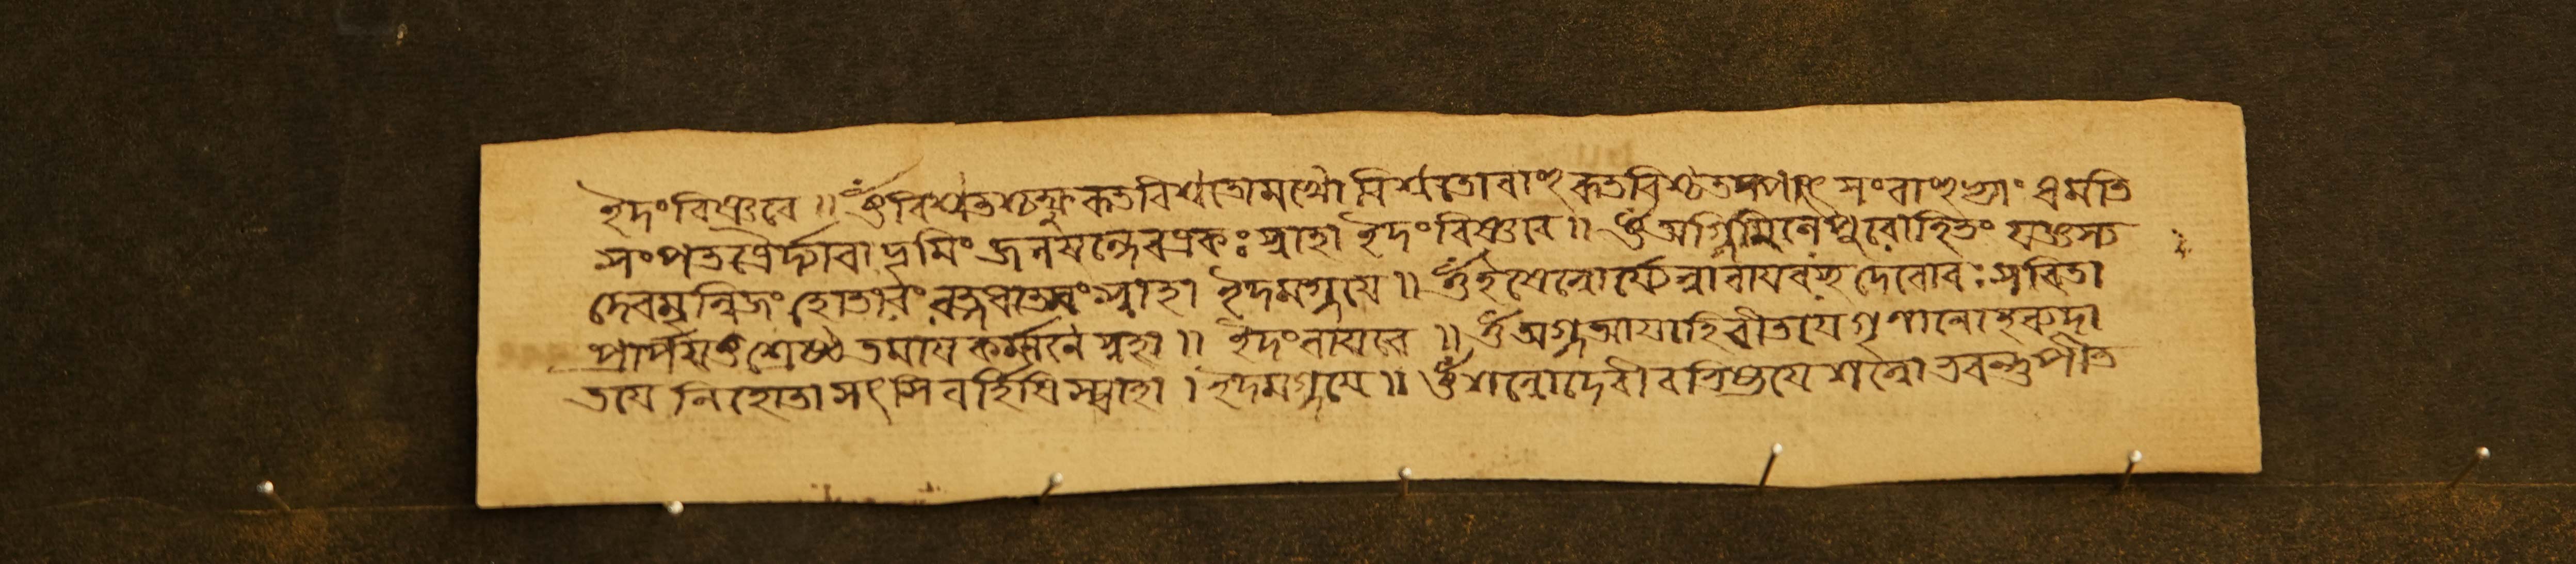 ইদং বিষ্ণবে ॥ ওঁ বিশ্বতশ্চক্ষুরুত বিশ্বতোমুখো বিশ্বতোবাহুরুত বিশ্বতস্পাৎ সংবাহুভ্যাং ধমতি
সংপতত্রৈর্দ্যাবাভূমিং জনয়ন্দেব একঃ স্বাহা ইদং বিষ্ণবে ॥ ওঁ অগ্নিমিলে পুরোহিতং যজ্ঞস্য
দেবমৃত্বিজং হোতারং রত্নধাতমং স্বাহা ইদমগ্নয়ে ॥ ওঁ ইষেত্বোর্জেত্বা বায়বস্থ দেবোবঃ সবিতা
প্রার্পয়তু শ্রেষ্ঠতমায় কর্ম্মনে স্বহা ॥ ইদং বায়বে ॥ ওঁ অগ্ন আয়াহি বীতয়ে গৃণানো হব্যদা
তয়ে নিহোতা সৎসি বর্হিষি স্বাহা । ইদমগ্নয়ে ॥ ওঁ শন্নোদেবীরভিষ্টয়ে শন্নো ভবন্তু পীত